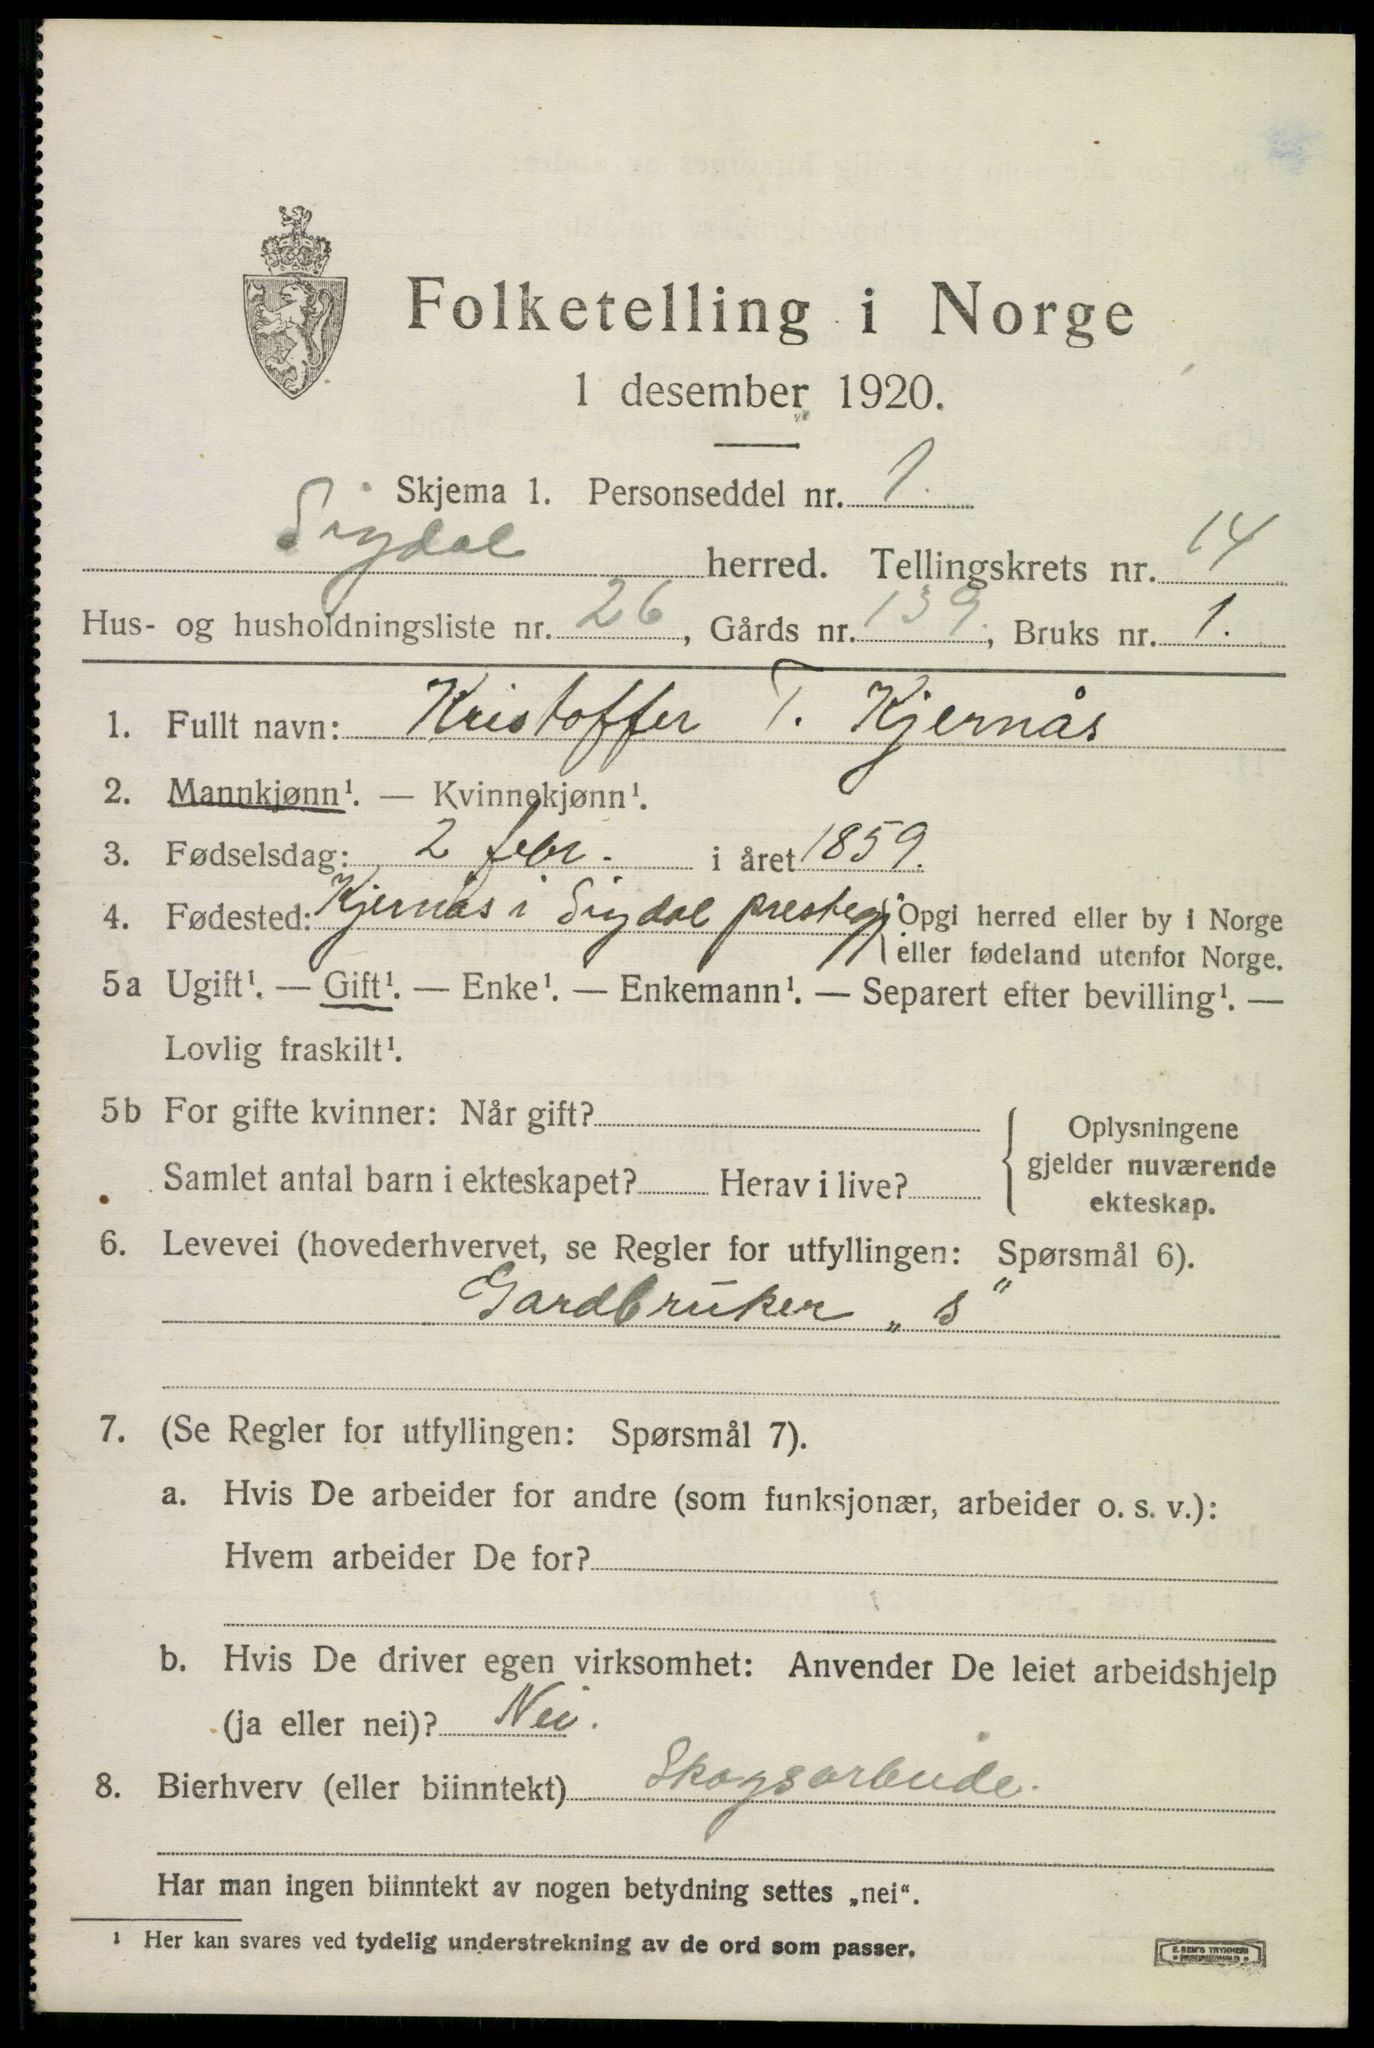 Folketelling i Norge
1 desember 1920.
Skjema 1. Personseddel nr. 1.
Sigdal herred. Tellingskrets nr. 14
Hus- og husholdningsliste nr. 26, Gårds nr. 139, Bruks nr. 1.
1. Fullt navn: Kristoffer T. Kjernås
2. Mannkjønn¹. — Kvinnekjønn¹.
3. Fødselsdag: 2 febr. i året 1859.
4. Fødested: Kjernås i Sigdal presteg. Opgi herred eller by i Norge
eller fødeland utenfor Norge.
5a Ugift¹. — Gift¹. — Enke¹. — Enkemann¹. — Separert efter bevilling¹. —
Lovlig fraskilt¹.
5b For gifte kvinner: Når gift?
Samlet antal barn i ekteskapet? Herav i live?
Oplysningene
gjelder nuværende
ekteskap.
6. Levevei (hovederhvervet, se Regler for utfyllingen: Spørsmål 6).
Gardbruker „s"
7. (Se Regler for utfyllingen: Spørsmål 7).
a. Hvis De arbeider for andre (som funksjonær, arbeider o. s. v.):
Hvem arbeider De for?
b. Hvis De driver egen virksomhet: Anvender De leiet arbeidshjelp
(ja eller nei)? Nei.
8. Bierhverv (eller biinntekt) Skogsarbeide.
Har man ingen biinntekt av nogen betydning settes „nei“.
¹ Her kan svares ved tydelig understrekning av de ord som passer.
E. SEM'S TRYKKERI